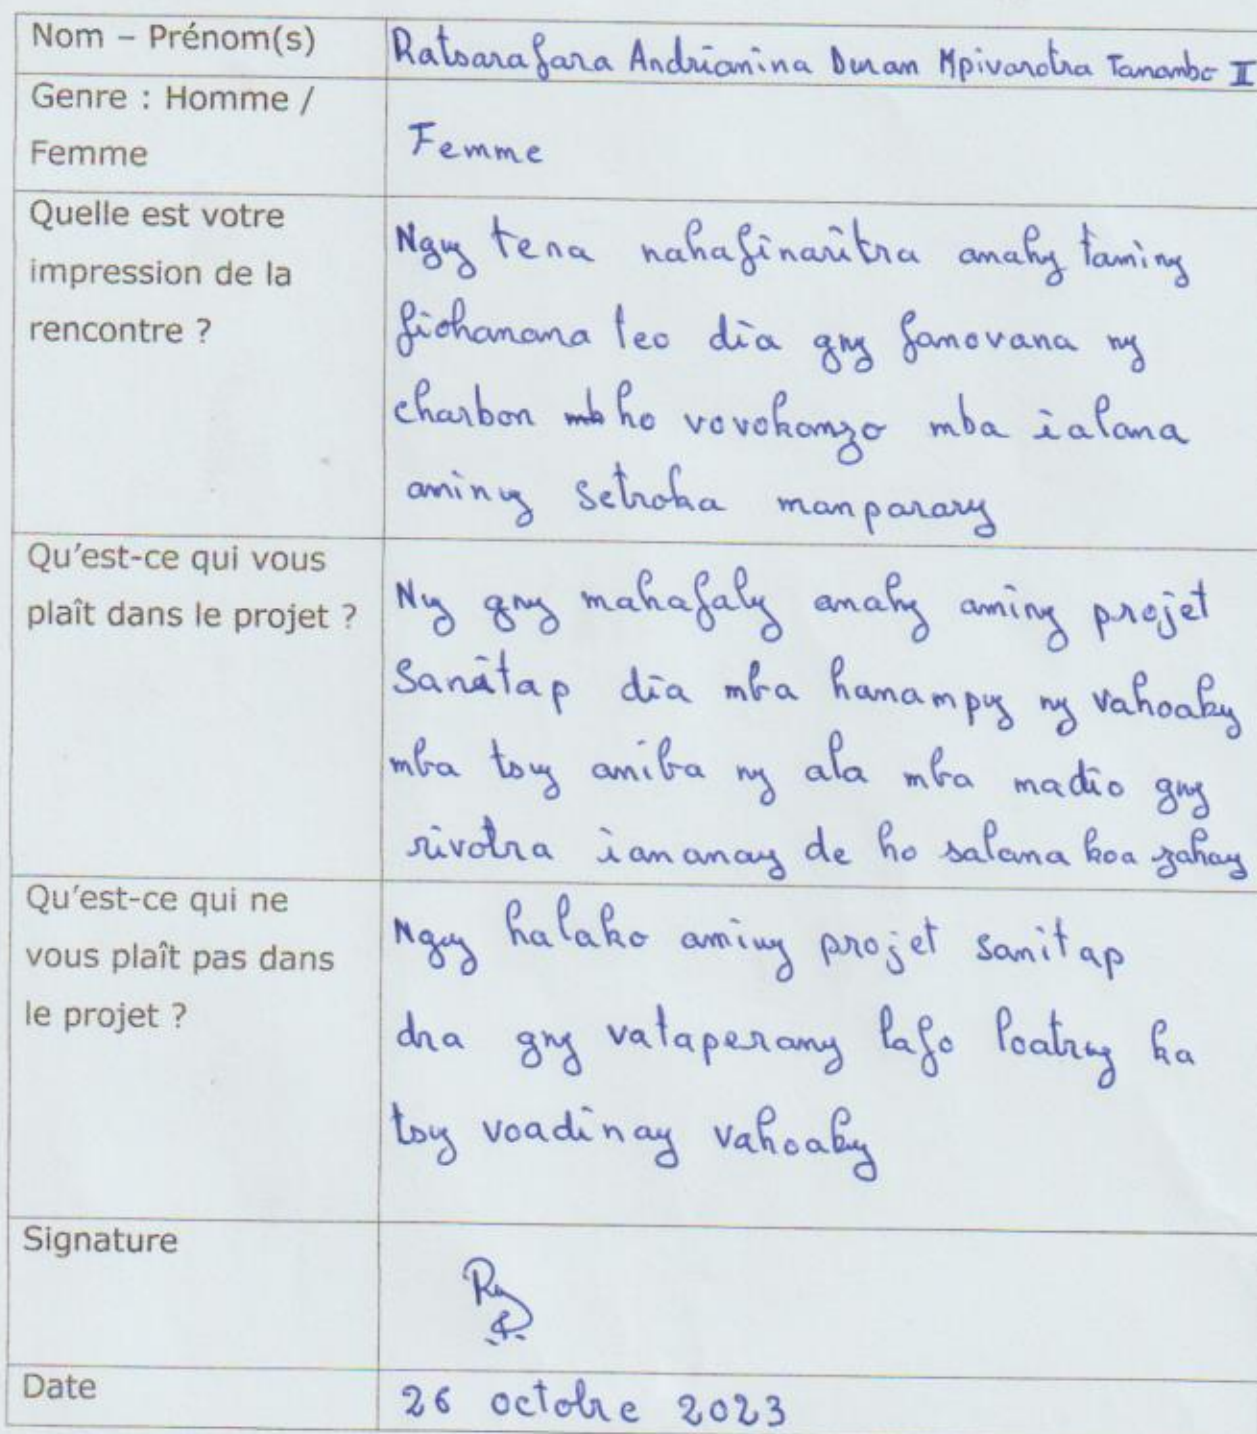 Nom – Prénom(s)
Ratsarafara Andrianina Duran Mpivarotra Tanambo II
Genre : Homme /
Femme
Femme
Quelle est votre
impression de la
rencontre ?
Ngny tena nahafinaritra anahy taminy
fiohanana teo dia gny fanovana ny
charbon ho vovokanzo mba ialana
aminy setroka manparary
Qu'est-ce qui vous
plaît dans le projet ?
Ny gny mahafaly anahy aminy projet
Sanitap dia mba hanampy ny vahoaky
mba tsy aniba ny ala mba madio gny
rivotra iananay de ho salama koa zahay
Qu'est-ce qui ne
vous plaît pas dans
le projet ?
Ngny halako aminy projet sanitap
dra gny vataperany lafo loatry ka
tsy voadinay vahoaky
Signature
Date
26 octobre 2023